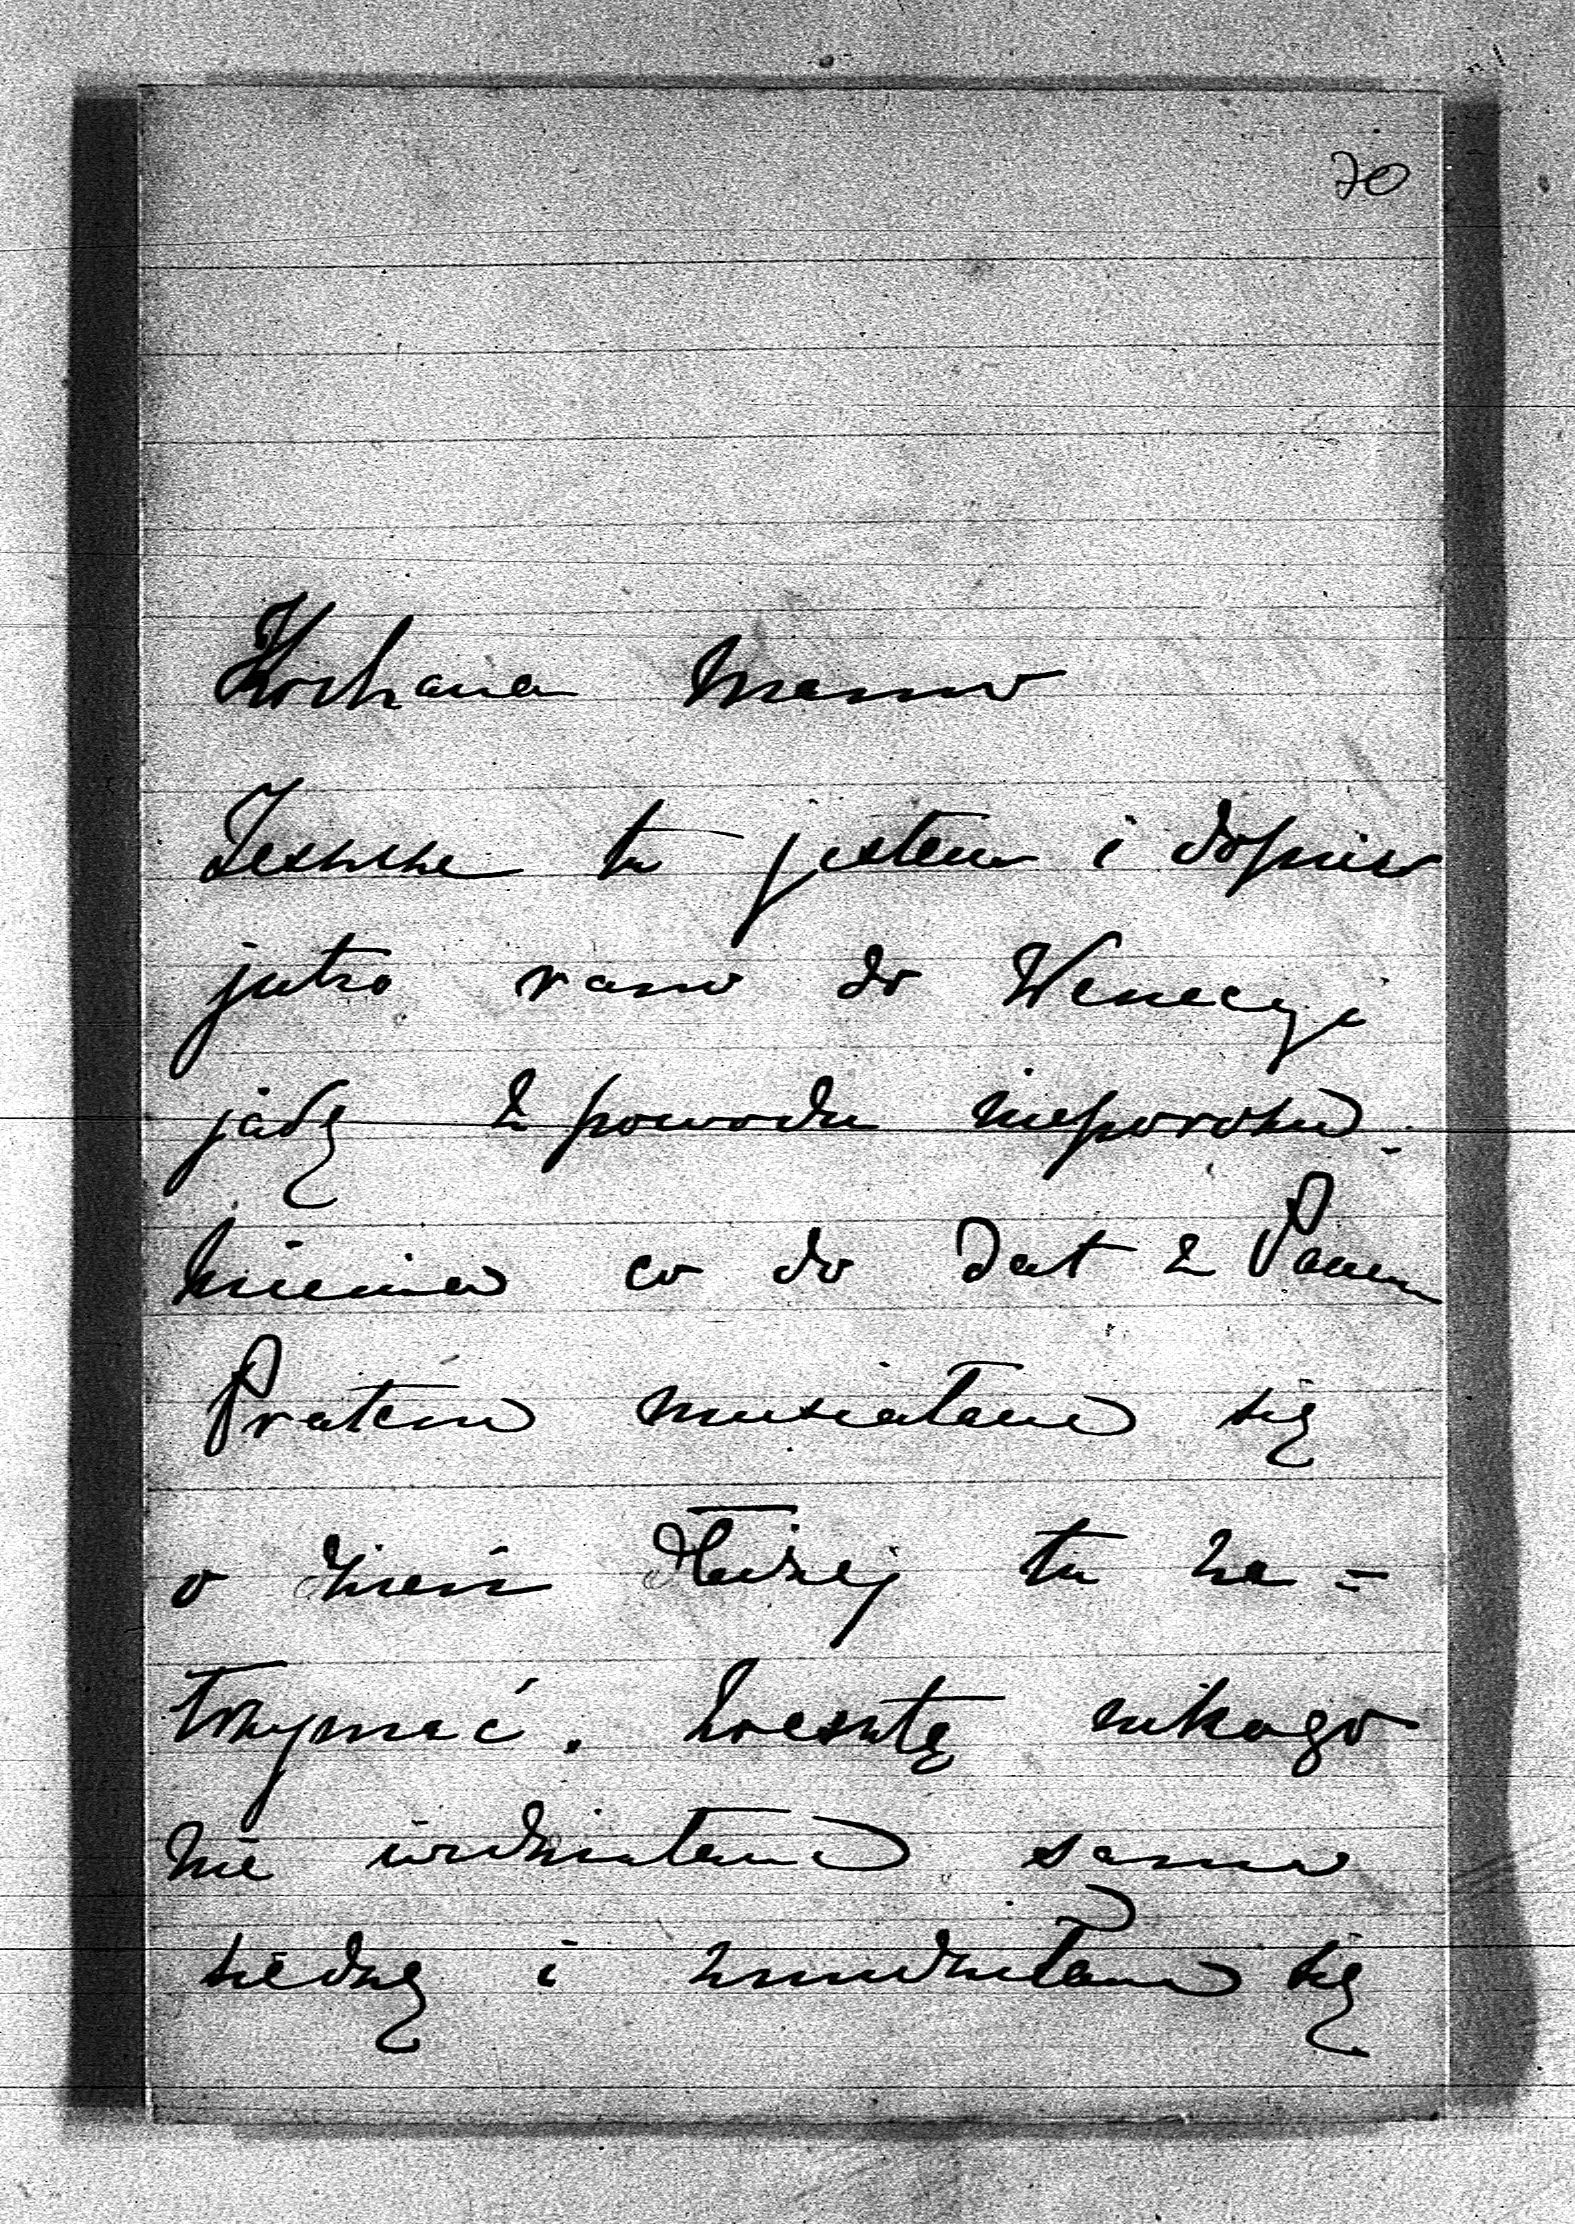 70
Kochana Mamo
Jeszcze tu jestem i dopiero
jutro rano do Wenecyi
jadę z powodu nieporozu-
mienia co do dat z Panem
Pratem musiałem się
o dzień dłużej tu za=
trzymać. Zresztą nikogo
nie widziałem sam
siedzę i znudziłem się